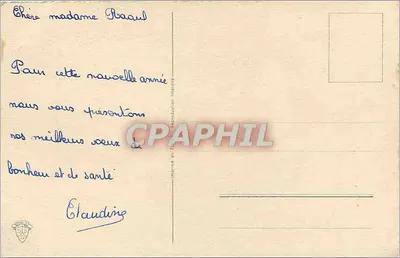 Chère madame Raoul
Pour cette nouvelle année
nous vous présentons
nos meilleurs voeux de
bonheur et de santé
Claudine
CPAPHIL